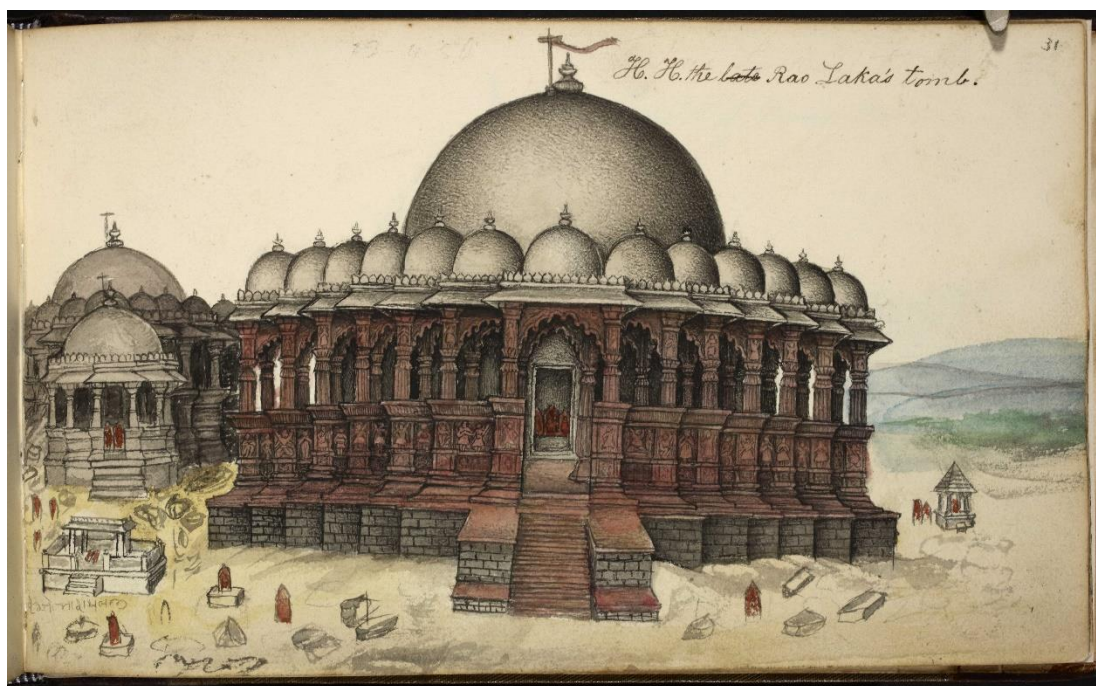 31
H. H. the late Rao Laka's tomb.